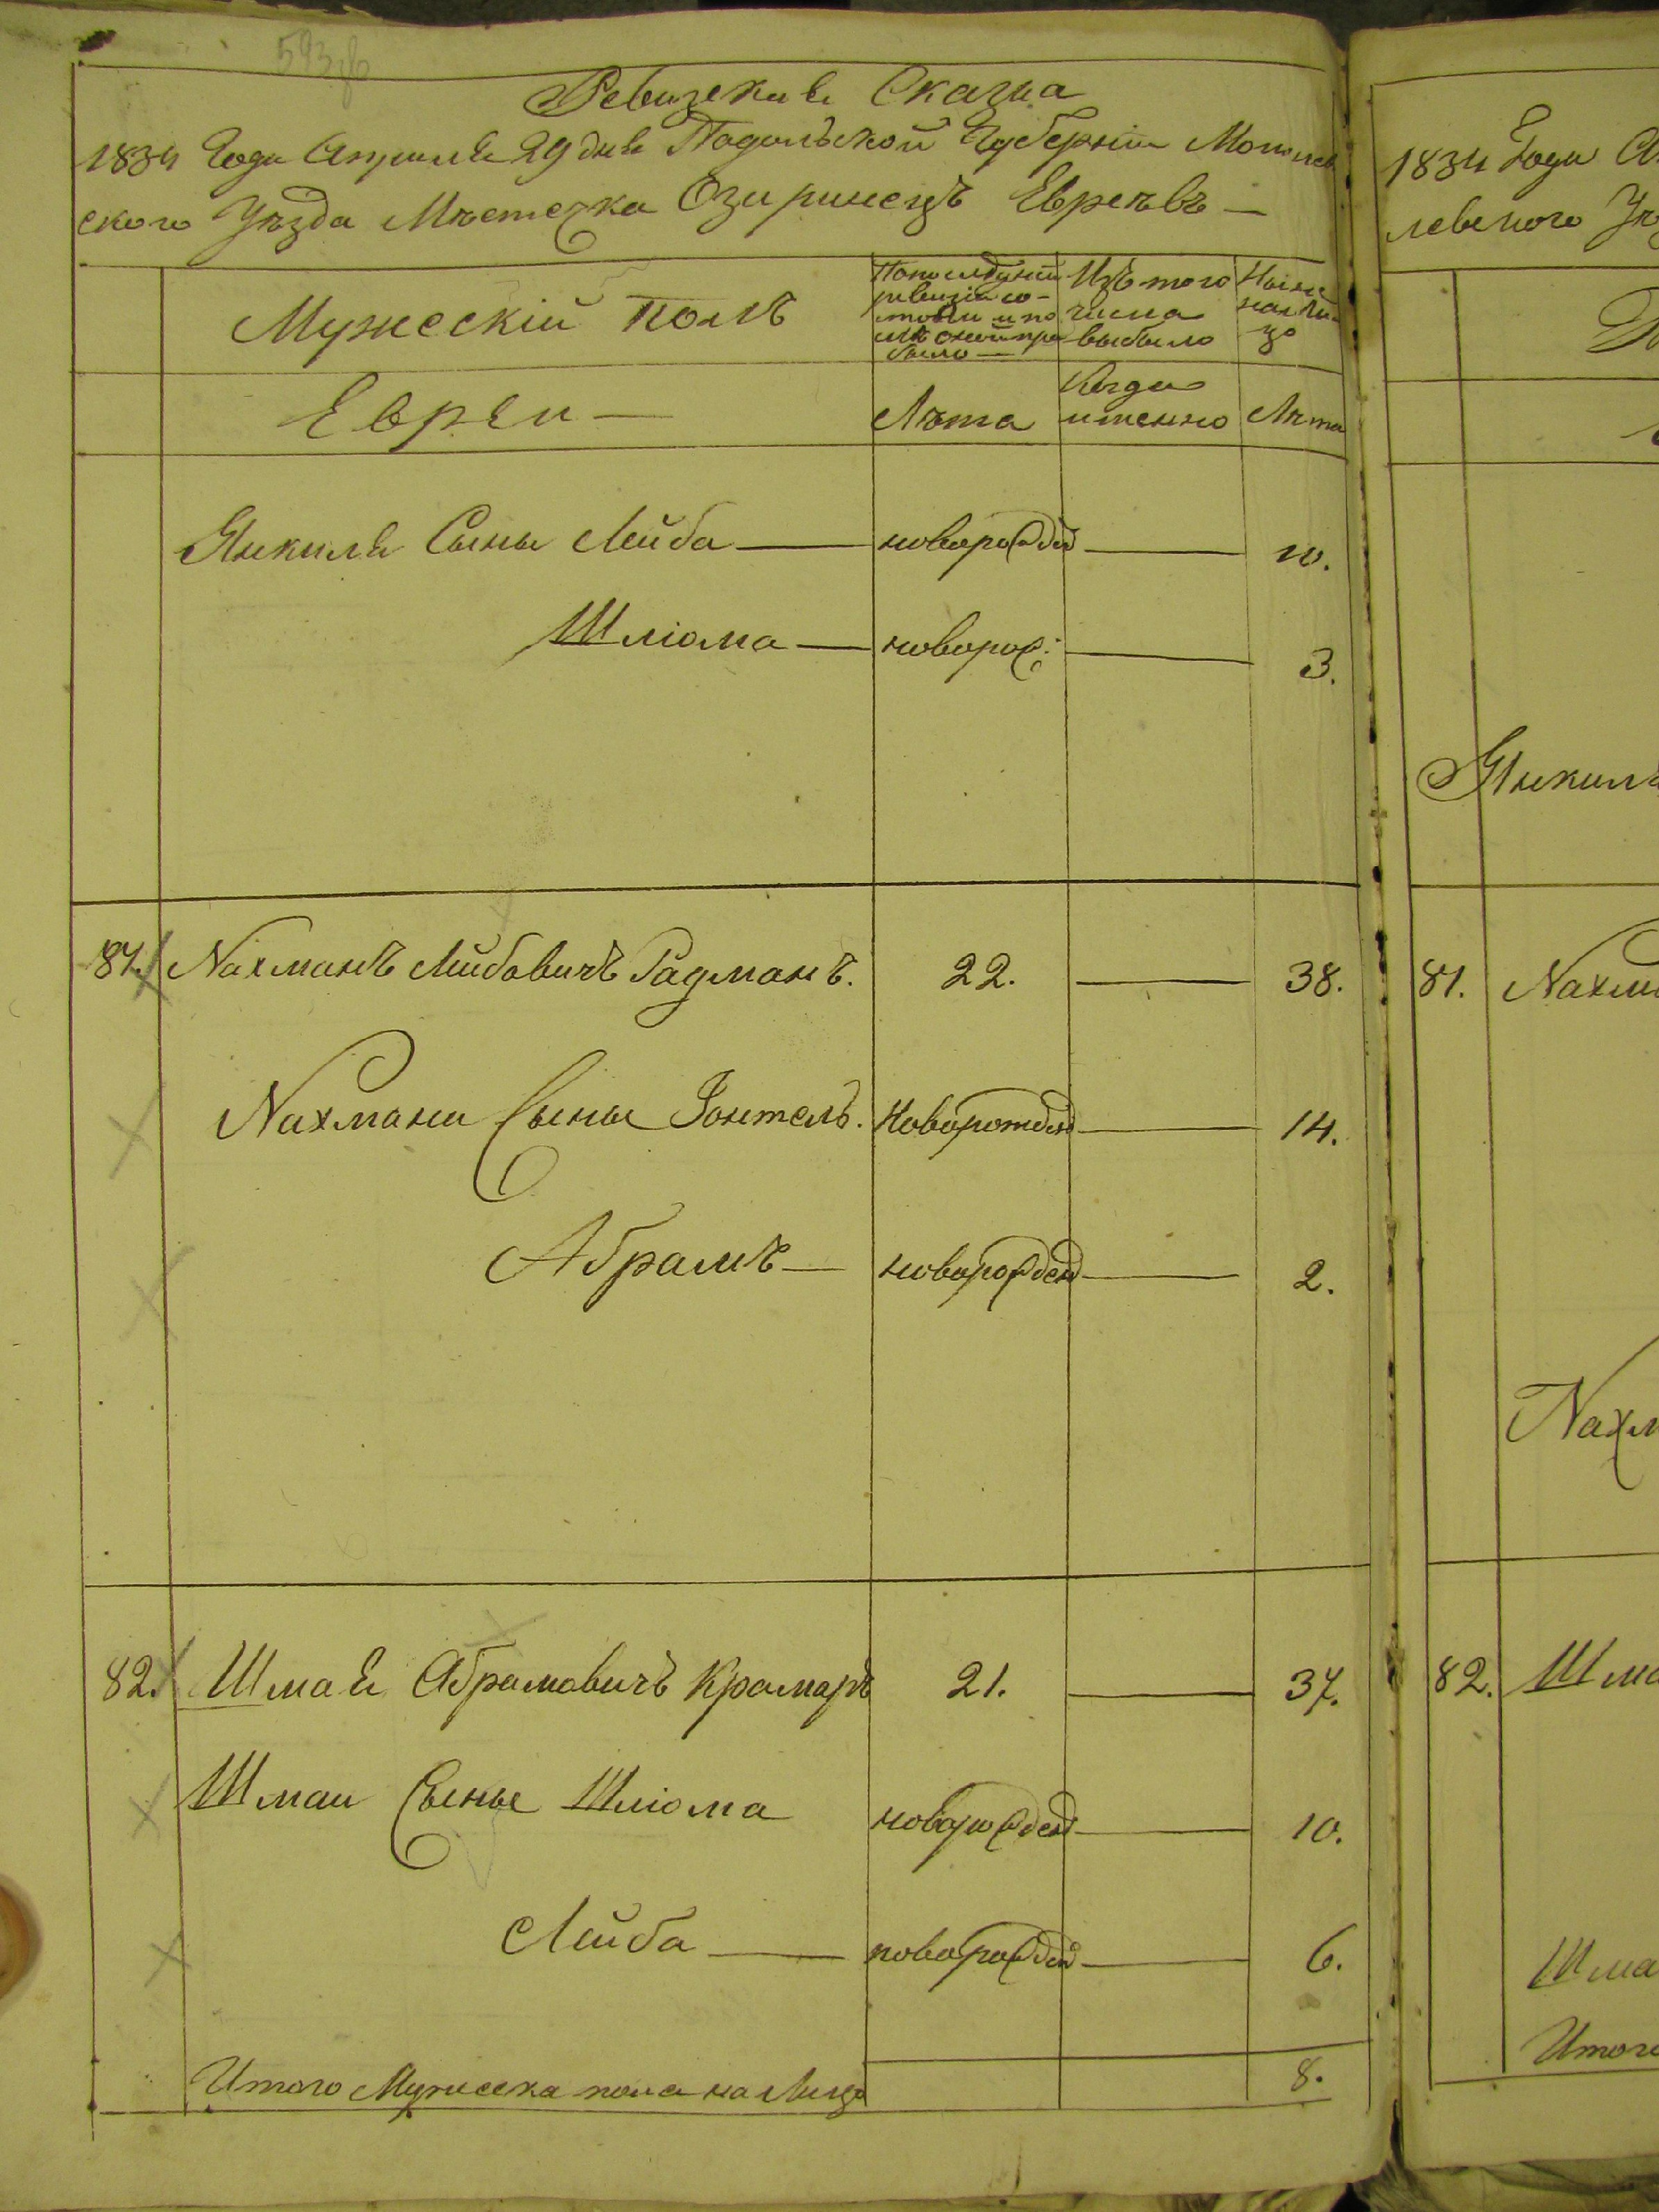 593
Ревизская Сказка
1834 Года Апреля 29 дня Подольской Губерніи Могилев
ского Уѣзда Мѣстечка Озаринецъ Евреевъ —
Мужескій полъ
По последней ревизіи со- стояло и по слѣ оной при было —
Изъ того числа выбыло
Ныне на ли- цо
Евреи —
Лѣта
Когда именно
Лѣта
Янкиля Сыны Лейба — новорожд — 10.
Шліома — новорож: — 3.
81. Нахманъ Лейбовичъ Гадманъ. 22. — 38.
Нахмана Сыны Іонтель. новорожден — 14.
Абрамъ — новорожден — 2.
82. Шмая Абрамовичъ Крамаръ 21. — 37.
Шмаи Сынье Шліома новорожден — 10.
Лейба — новорожден — 6.
Итого Мужеска пола на Лицо 8.
1834 Года
левского
Янкиля
81. Нахм
Нахм
82. Шма
Шма
Итого